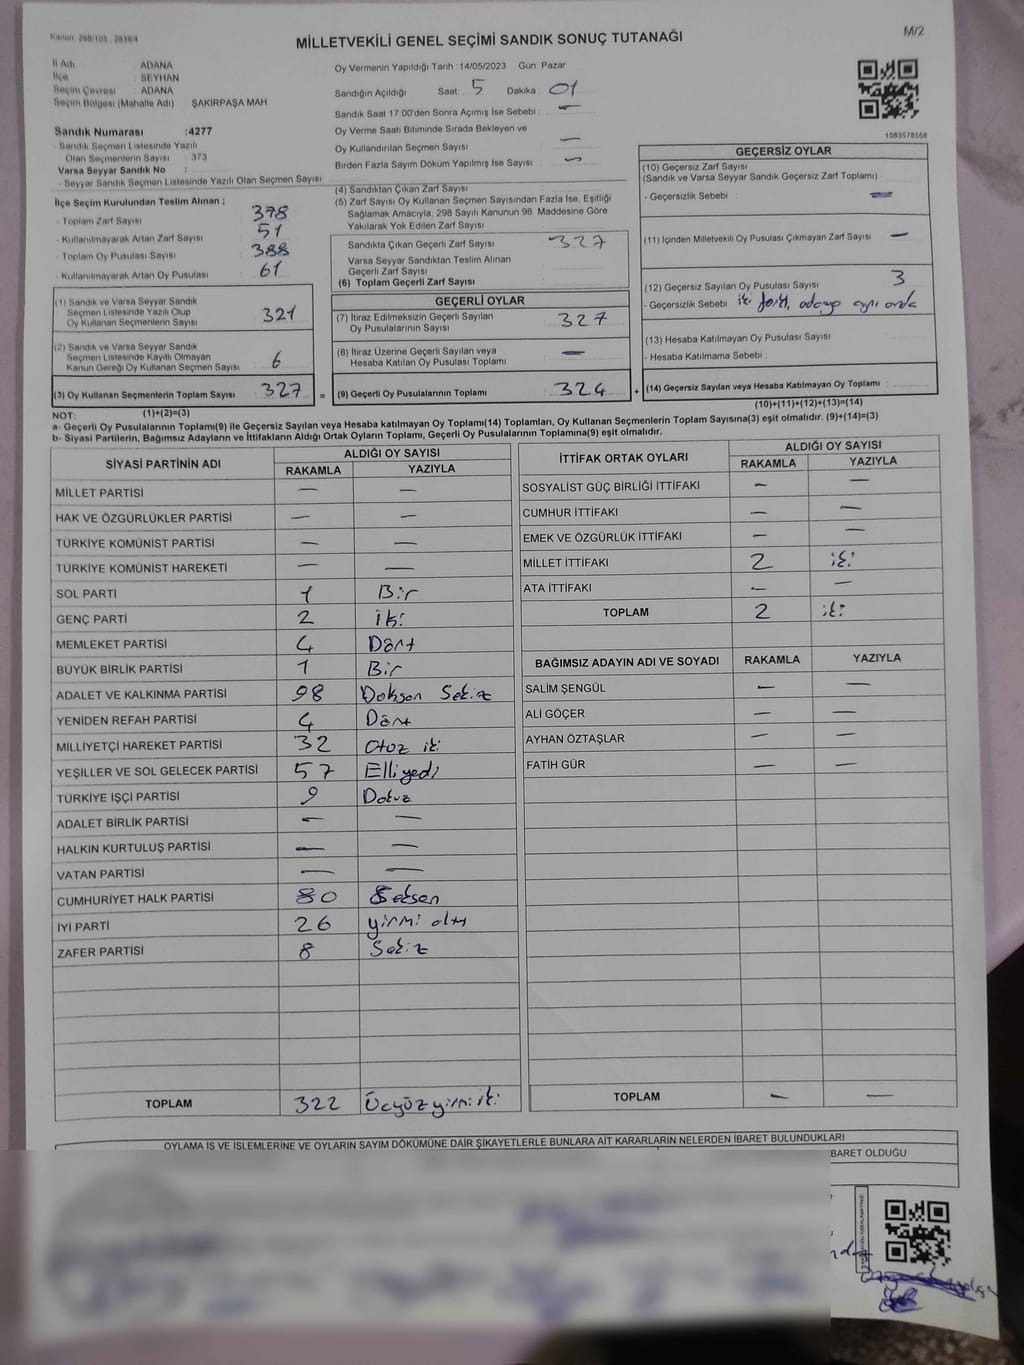 Kanun: 298/105 , 2839/4
M/2
MİLLETVEKİLİ GENEL SEÇİMİ SANDIK SONUÇ TUTANAĞI
İl Adı : ADANA
İlçe : SEYHAN
Seçim Çevresi : ADANA
Seçim Bölgesi (Mahalle Adı) ŞAKİRPAŞA MAH
Sandık Numarası :4277
- Sandık Seçmen Listesinde Yazılı
Olan Seçmenlerin Sayısı : 373
Varsa Seyyar Sandık No :
- Seyyar Sandık Seçmen Listesinde Yazılı Olan Seçmen Sayısı :
İlçe Seçim Kurulundan Teslim Alınan ;
- Toplam Zarf Sayısı : 378
- Kullanılmayarak Artan Zarf Sayısı : 51
- Toplam Oy Pusulası Sayısı : 388
- Kullanılmayarak Artan Oy Pusulası : 61
(1) Sandık ve Varsa Seyyar Sandık
Seçmen Listesinde Yazılı Olup
Oy Kullanan Seçmenlerin Sayısı : 321
(2) Sandık ve Varsa Seyyar Sandık
Seçmen Listesinde Kayıtlı Olmayan
Kanun Gereği Oy Kullanan Seçmen Sayısı : 6
(3) Oy Kullanan Seçmenlerin Toplam Sayısı : 327 =
(1)+(2)=(3)
Oy Vermenin Yapıldığı Tarih :14/05/2023 Gün: Pazar
Sandığın Açıldığı Saat : 5 Dakika : 01
Sandık Saat 17:00'den Sonra Açımış İse Sebebi : —
Oy Verme Saati Bitiminde Sırada Bekleyen ve
Oy Kullandırılan Seçmen Sayısı : —
Birden Fazla Sayım Döküm Yapılmış İse Sayısı : —
(4) Sandıktan Çıkan Zarf Sayısı :
(5) Zarf Sayısı Oy Kullanan Seçmen Sayısından Fazla İse, Eşitliği
Sağlamak Amacıyla, 298 Sayılı Kanunun 98. Maddesine Göre
Yakılarak Yok Edilen Zarf Sayısı :
Sandıkta Çıkan Geçerli Zarf Sayısı : 327
Varsa Seyyar Sandıktan Teslim Alınan
Geçerli Zarf Sayısı :
(6) Toplam Geçerli Zarf Sayısı :
GEÇERLİ OYLAR
(7) İtiraz Edilmeksizin Geçerli Sayılan
Oy Pusulalarının Sayısı : 327
(8) İtiraz Üzerine Geçerli Sayılan veya
Hesaba Katılan Oy Pusulası Toplamı : —
(9) Geçerli Oy Pusulalarının Toplamı : 324 +
1083578558
GEÇERSİZ OYLAR
(10) Geçersiz Zarf Sayısı
(Sandık ve Varsa Seyyar Sandık Geçersiz Zarf Toplamı) :
- Geçersizlik Sebebi : —
(11) İçinden Milletvekili Oy Pusulası Çıkmayan Zarf Sayısı : —
(12) Geçersiz Sayılan Oy Pusulası Sayısı : 3
- Geçersizlik Sebebi : iki parti, adaya aynı anda
(13) Hesaba Katılmayan Oy Pusulası Sayısı :
- Hesaba Katılmama Sebebi :
(14) Geçersiz Sayılan veya Hesaba Katılmayan Oy Toplamı :
(10)+(11)+(12)+(13)=(14)
NOT:
a- Geçerli Oy Pusulalarının Toplamı(9) ile Geçersiz Sayılan veya Hesaba Katılmayan Oy Toplamı(14) Toplamları, Oy Kullanan Seçmenlerin Toplam Sayısına(3) eşit olmalıdır. (9)+(14)=(3)
b- Siyasi Partilerin, Bağımsız Adayların ve İttifakların Aldığı Ortak Oyların Toplamı, Geçerli Oy Pusulalarının Toplamına(9) eşit olmalıdır.
SİYASİ PARTİNİN ADI ALDIĞI OY SAYISI
RAKAMLA YAZIYLA
MİLLET PARTİSİ — —
HAK VE ÖZGÜRLÜKLER PARTİSİ — —
TÜRKİYE KOMÜNİST PARTİSİ — —
TÜRKİYE KOMÜNİST HAREKETİ — —
SOL PARTİ 1 Bir
GENÇ PARTİ 2 iki
MEMLEKET PARTİSİ 4 Dört
BÜYÜK BİRLİK PARTİSİ 1 Bir
ADALET VE KALKINMA PARTİSİ 98 Doksan Sekiz
YENİDEN REFAH PARTİSİ 4 Dört
MİLLİYETÇİ HAREKET PARTİSİ 32 Otuz iki
YEŞİLLER VE SOL GELECEK PARTİSİ 57 Elliyedi
TÜRKİYE İŞÇİ PARTİSİ 9 Dokuz
ADALET BİRLİK PARTİSİ — —
HALKIN KURTULUŞ PARTİSİ — —
VATAN PARTİSİ — —
CUMHURİYET HALK PARTİSİ 80 Seksen
İYİ PARTİ 26 yirmi altı
ZAFER PARTİSİ 8 Sekiz
TOPLAM 322 Üçyüzyirmi iki
İTTİFAK ORTAK OYLARI ALDIĞI OY SAYISI
RAKAMLA YAZIYLA
SOSYALİST GÜÇ BİRLİĞİ İTTİFAKI — —
CUMHUR İTTİFAKI — —
EMEK VE ÖZGÜRLÜK İTTİFAKI — —
MİLLET İTTİFAKI 2 iki
ATA İTTİFAKI — —
TOPLAM 2 iki
BAĞIMSIZ ADAYIN ADI VE SOYADI RAKAMLA YAZIYLA
SALİM ŞENGÜL — —
ALİ GÖÇER — —
AYHAN ÖZTAŞLAR — —
FATİH GÜR — —
TOPLAM — —
OYLAMA İŞ VE İŞLEMLERİNE VE OYLARIN SAYIM DÖKÜMÜNE DAİR ŞİKAYETLERLE BUNLARA AİT KARARLARIN NELERDEN İBARET BULUNDUKLARI
BARET OLDUĞU